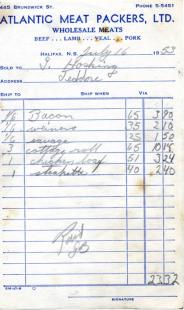 445 BRUNSWICK ST. PHONE 5-5451
ATLANTIC MEAT PACKERS, LTD.
WHOLESALE MEATS
BEEF . . . LAMB . . . VEAL . . . PORK
HALIFAX, N.S. July 16 1953
SOLD TO Hosking
ADDRESS Jeddore
SHIP TO SHIP WHEN VIA
6 Bacon 65 3 90
6 wieners 35 2 10
sausage 25 1 50
cottage roll 65
1 chicken loaf 51 3 24
1 steakette 40 2 40
Paid
SIGNATURE